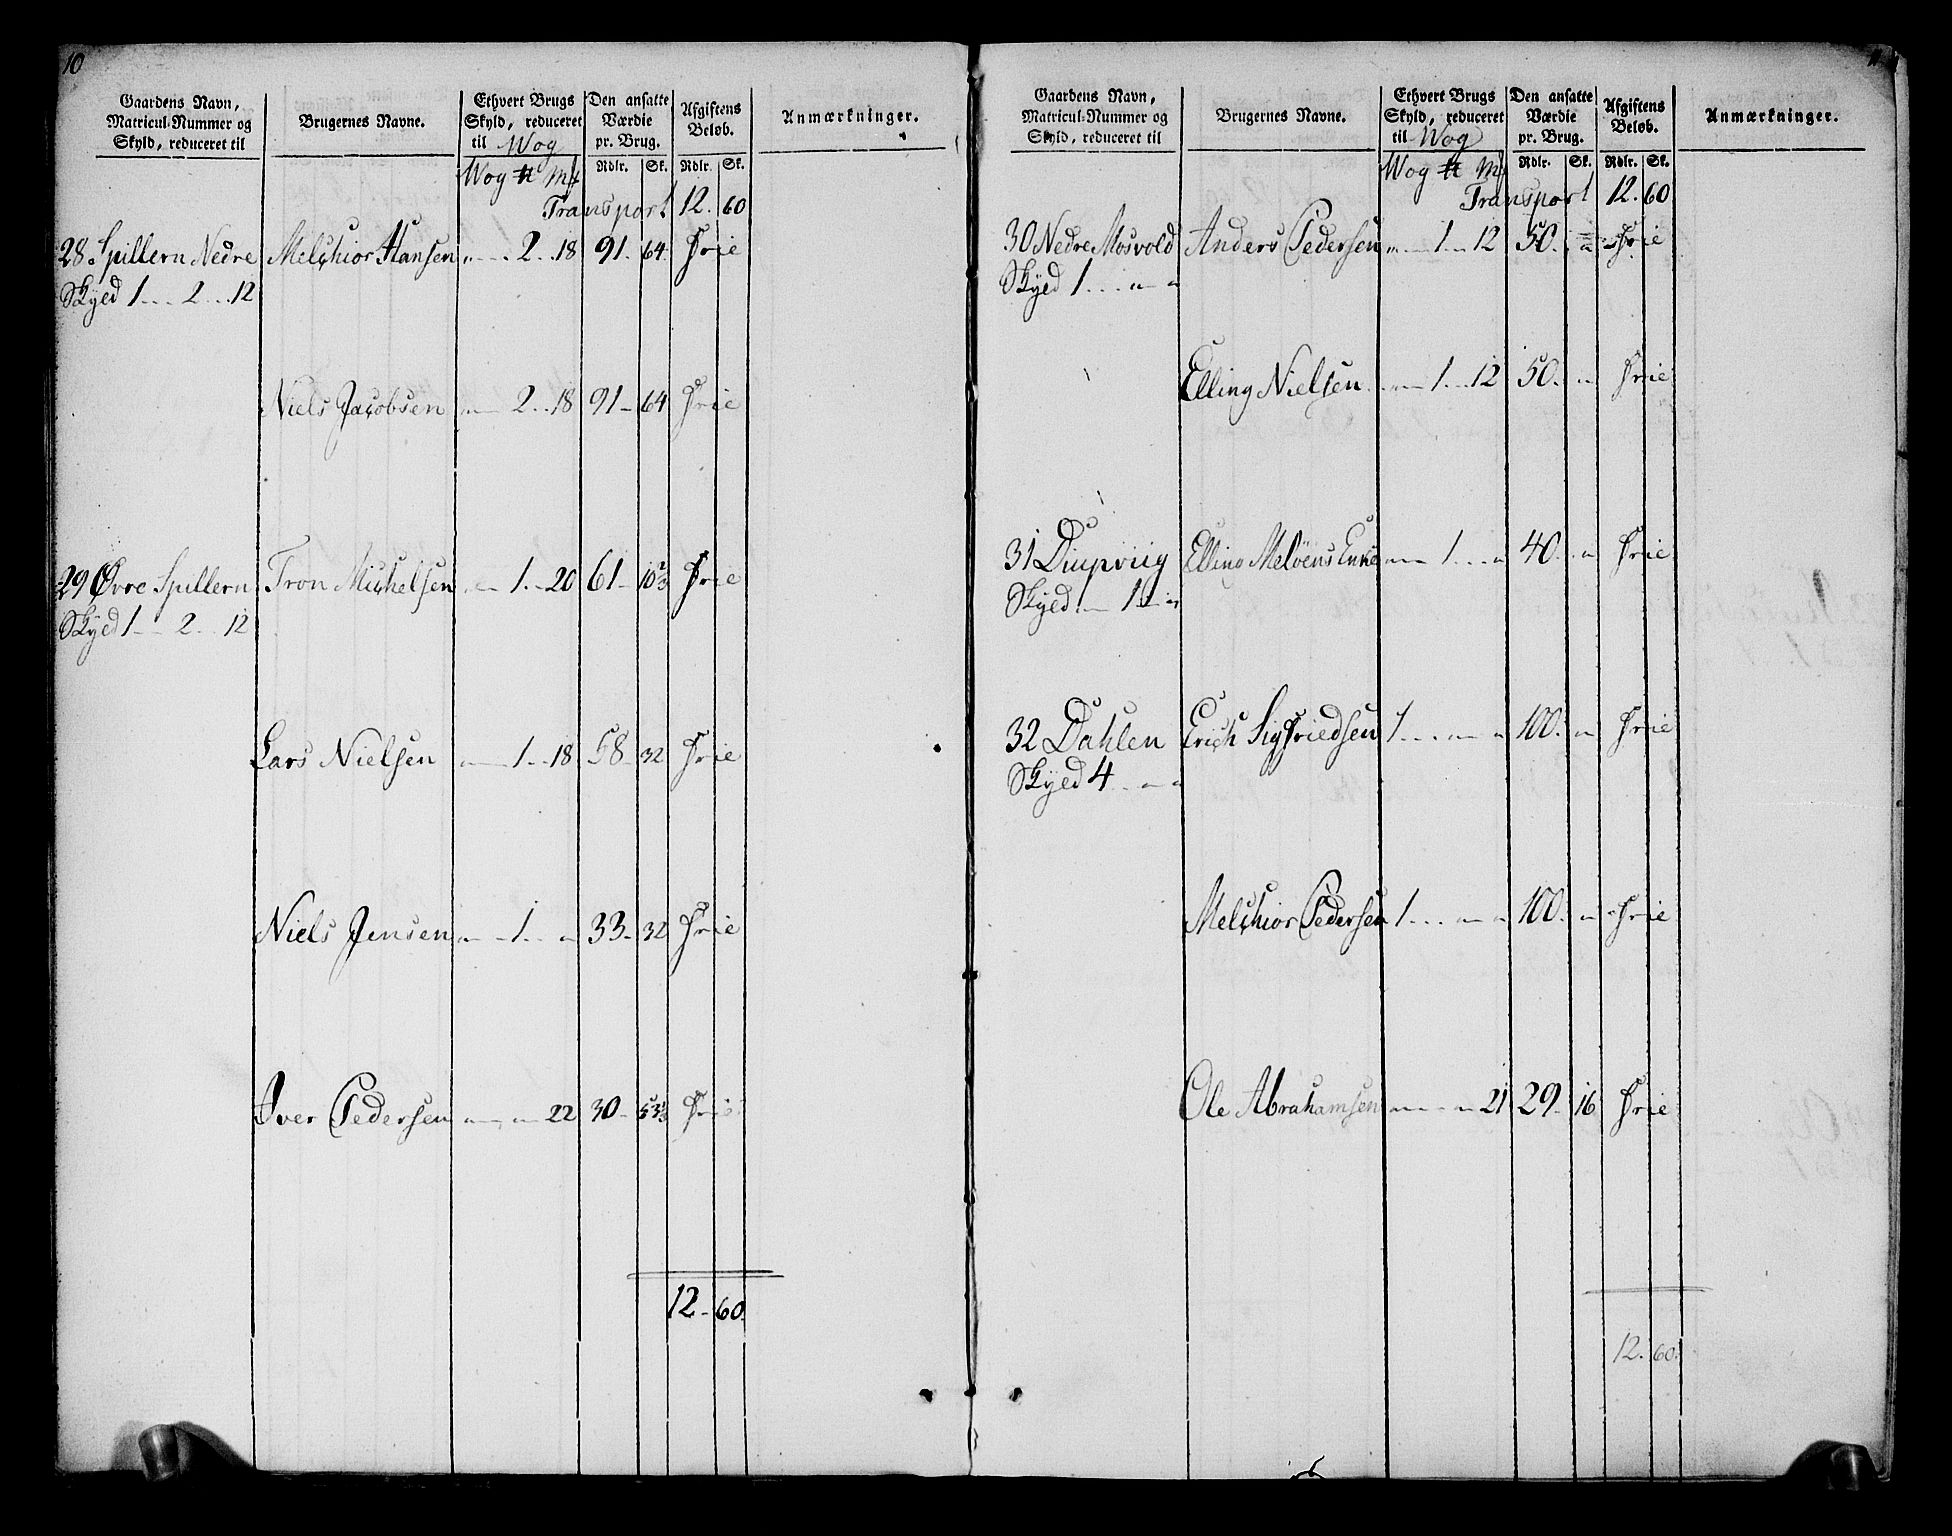 10
Gaardens Navn, Matricul-Nummer og Skyld, reduceret til | Brugernes Navne. | Ethvert Brugs Skyld, reduceret til Wog | Den ansatte Værdie pr. Brug. | Afgiftens Beløb. | Anmærkninger.
Wog ℔ Mk | Rdlr. | Sk. | Rdlr. | Sk.
Transport 12. 60
28 Spillern Nedre Melchior Hansen „ - 2 - 18 91 - 64 frie
Skyld 1 - 2 - 12
Niels Jacobsen „ - 2 - 18 91 - 64 frie
29 Øvre Spillern Tron Michelsen „ - 1 - 20 61 - 10 2/3 frie
Skyld 1 - 2 - 12
Lars Nielsen „ - 1 - 18 58 - 32 frie
Niels Jensen „ - 1 - „ 33 - 32 frie
Iver Pedersen „ - „ - 22 30 - 53 1/3 frie
12 - 60
11
Gaardens Navn, Matricul-Nummer og Skyld, reduceret til | Brugernes Navne. | Ethvert Brugs Skyld, reduceret til Wog | Den ansatte Værdie pr. Brug. | Afgiftens Beløb. | Anmærkninger.
Wog ℔ Mk | Rdlr. | Sk. | Rdlr. | Sk.
Transport 12. 60
30 Nedre Mosvold Anders Pedersen „ - 1 - 12 50. „ frie
Skyld 1 - „ - „
Elling Nielsen „ - 1 - 12 50. „ frie
31 Diupviig Elling Meløens Enke „ - 1 - „ 40. „ frie
Skyld „ 1 - „
32 Dahlen Erich Sigfriedsen 1 - „ - „ 100. „ frie
Skyld 4 - „ - „
Melchior Pedersen 1 - „ - „ 100. „ frie
Ole Abrahamsen „ - „ - 21 29. 16 frie
12. 60.